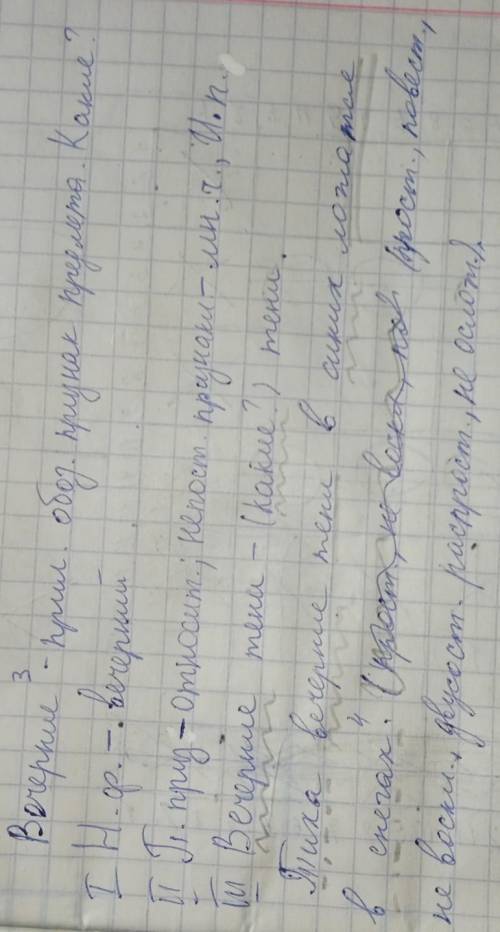 Вечерние³ - прил. обоз. признак предмета. Какие?
I Н.ф. - вечерний
II П. призн - относит.; непост. признаки - мн.ч., И.п.
III Вечерние тени - (какие?) тени.
Тихо вечерние тени в синих ложатся
в снегах.⁴ (прост., повест.,
не воскл., двусост. распрост., не ослож.).